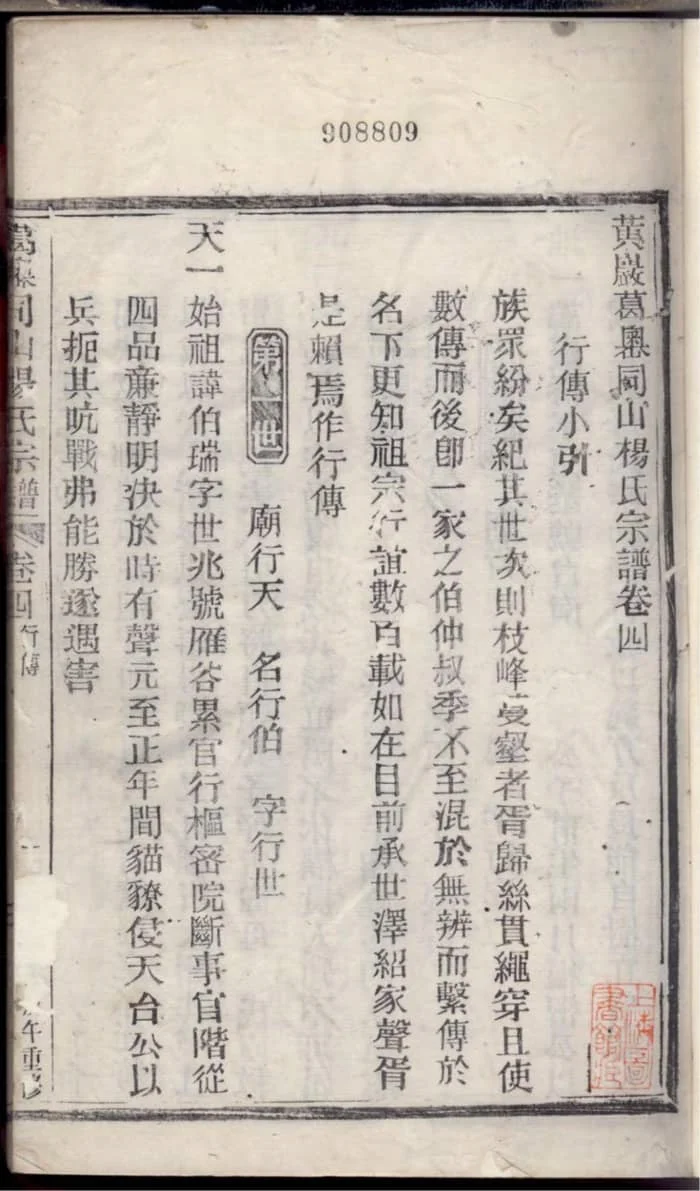 908809
黃巖葛嶴同山楊氏宗譜卷四
行傳小引
族眾紛矣紀其世次則枝峰蔓壑者胥歸絲貫繩穿且使
數傳而後卽一家之伯仲叔季不至混於無辨而繫傳於
名下更知祖宗行誼數百載如在目前承世澤紹家聲胥
是賴焉作行傳
第一世 廟行天 名行伯 字行世
天一 始祖諱伯瑞字世兆號雁峇累官行樞密院斷事官階從
四品亷靜明決於時有聲元至正年間貓獠侵天台公以
兵扼其吭戰弗能勝遂遇害
葛嶴同山楊氏宗譜 卷四 行傳
午重修
上海圖書館藏